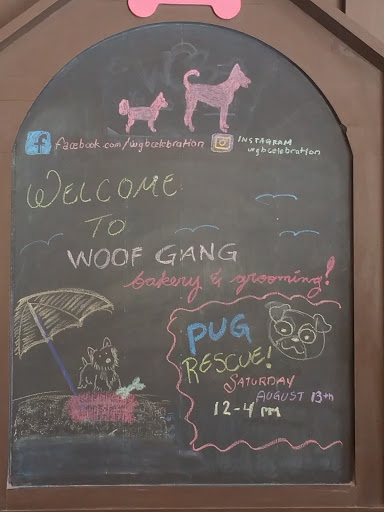 facebook.com/wgbcelebration
INSTAGRAM
wgbcelebration
WELCOME
TO
WOOF GANG
bakery & grooming!
PUG
RESCUE!
SATURDAY
AUGUST 13th
12-4 PM